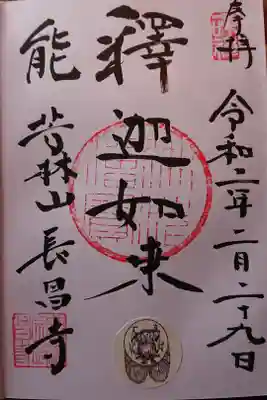 奉拝
令和二年二月二十九日
釋迦如来
能
芳林山 長昌寺